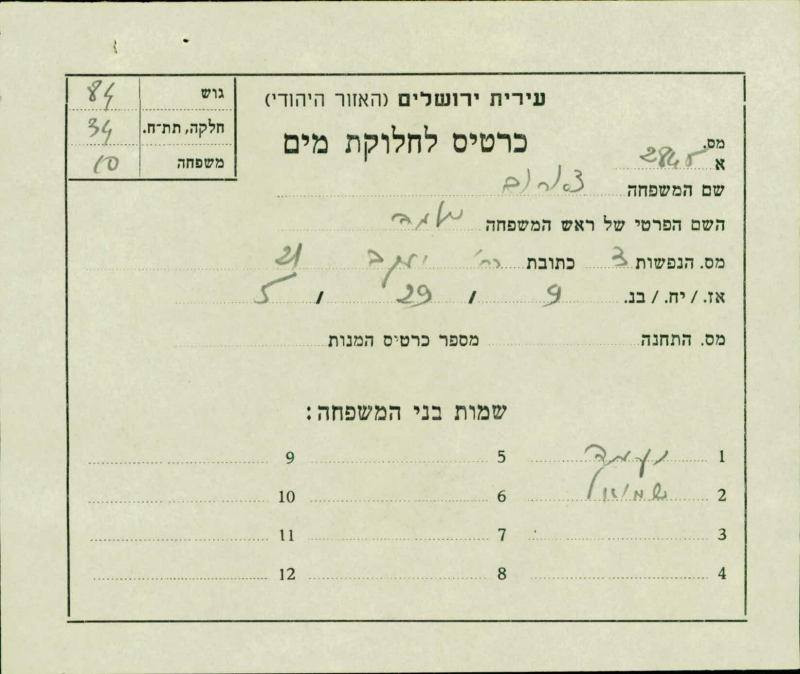 גוש 84
חלקה, תת־ח. 34
משפחה 10
עירית ירושלים (האזור היהודי)
כרטיס לחלוקת מים
מס.
א 2845
שם המשפחה
השם הפרטי של ראש המשפחה שלמה
מס. הנפשות 3 כתובת רח' יעקב 21
אז. / יח. / בנ. 9 / 29 / 5
מס. התחנה מספר כרטיס המנות
שמות בני המשפחה:
1 נעמה 5 9
2 שמואל 6 10
3 7 11
4 8 12